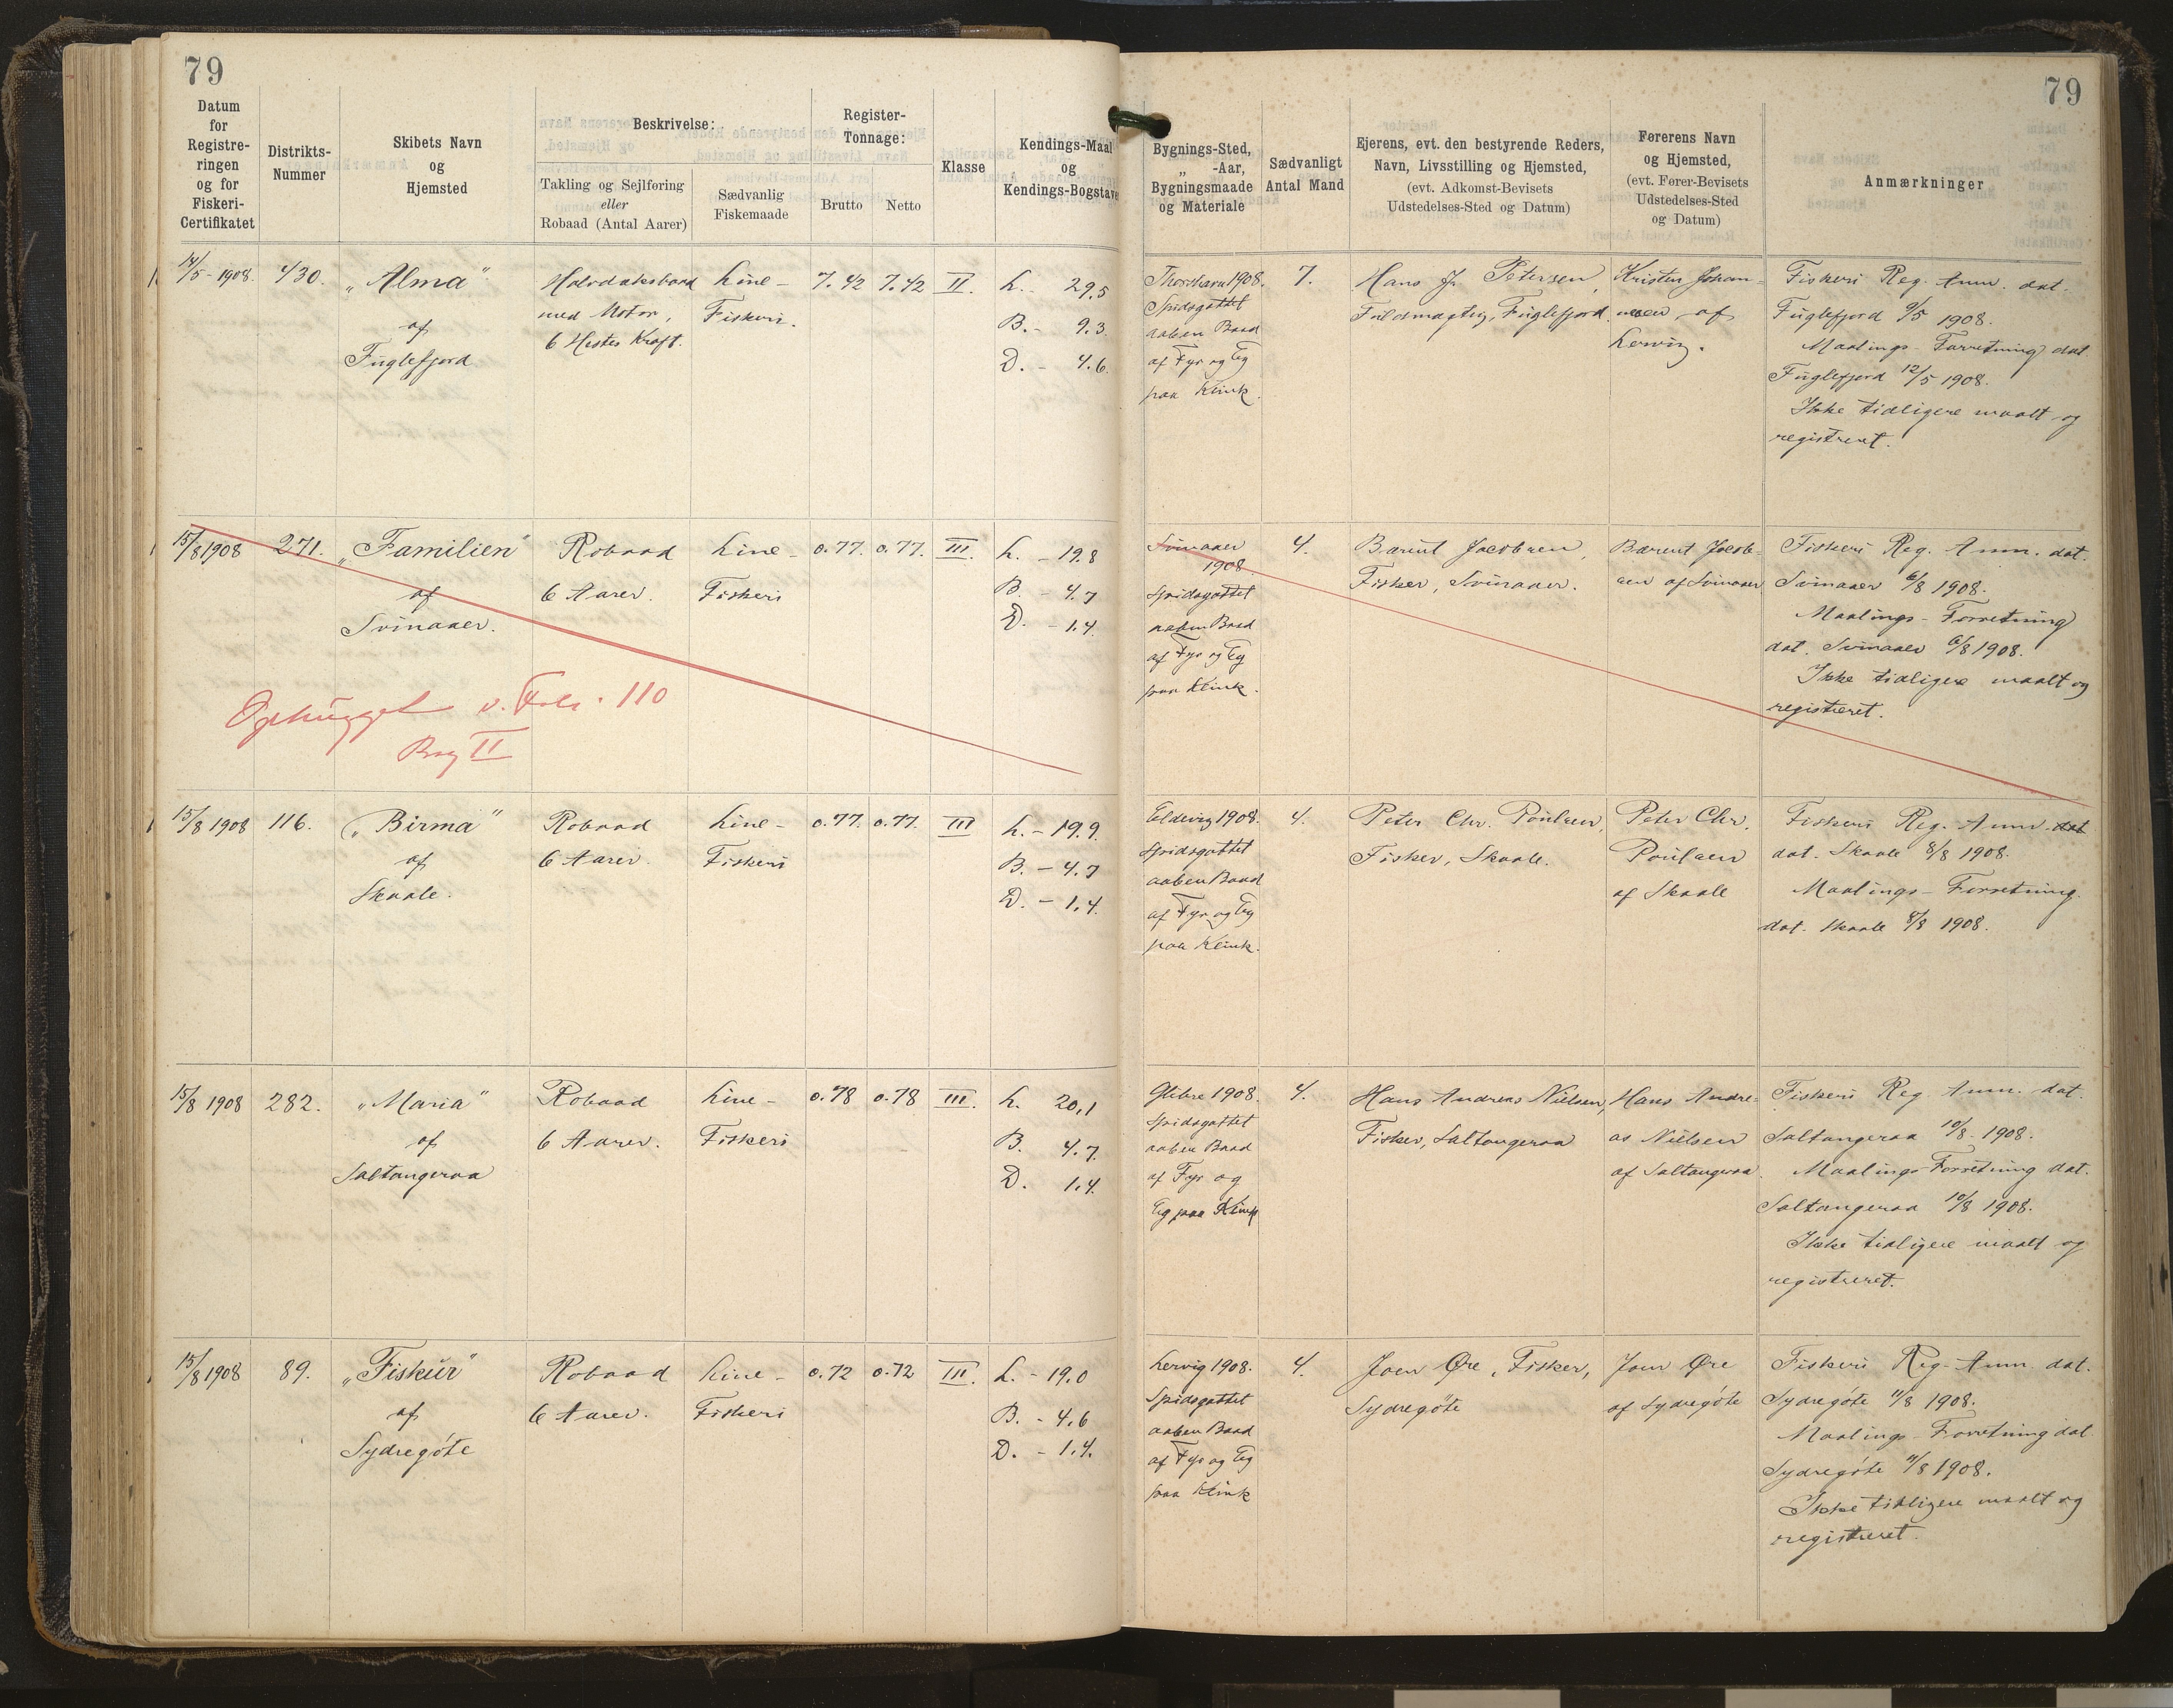 79
79
Datum
for
Registre-
ringen
og for
Fiskeri-
Certifikatet
Distrikts-
Nummer
Skibets Navn
og
Hjemsted
Beskrivelse:
Takling og Sejlføring
eller
Robaad (Antal Aarer)
Sædvanlig
Fiskemaade
Register-
Tonnage:
Brutto
Netto
Klasse
Kendings-Maal
og
Kendings-Bogstave
Bygnings-Sted,
„ -Aar,
Bygningsmaade
og Materiale
Sædvanligt
Antal Mand
Ejerens, evt. den bestyrende Reders,
Navn, Livsstilling og Hjemsted,
(evt. Adkomst-Bevisets
Udstedelses-Sted og Datum)
Førerens Navn
og Hjemsted,
(evt. Fører-Bevisets
Udstedelses-Sted
og Datum)
Anmærkninger
14/5 - 1908.
430.
„Alma"
af
Fuglefjord
Halvdaksbaad
med Motor,
6 Hestes Kraft.
Line-
Fiskeri.
7.42
7.42
II.
L. 29,5
B. - 9.3
D. - 4.6.
1908.
Spidsgattet
aaben Baad
af Fyr og Eg
paa Klink.
7.
Hans J. Petersen,
Fuldmægtig, Fuglefjord.
Kristen Johan-
nesen af
Lervig.
Fiskeri Reg. Anm. dat.
Fuglefjord 9/5 1908.
Maalings-Forretning dat.
Fuglefjord 12/5 1908.
Ikke tidligere maalt og
registreret.
15/8 1908
271.
„Familien"
af
Svinaaer.
Robaad
6 Aarer.
Line-
Fiskeri
0.77.
0.77.
III.
L. - 19.8
B. - 4.7
D. - 1.4.
Svinaaer
1908
Spidsgattet
aaben Baad
af Fyr og Eg
paa Klink.
4.
Bærent Jacobsen,
Fisker, Svinaaer.
Bærent Jacob-
sen af Svinaaer
Fiskeri Reg. Anm. dat.
Svinaaer 6/8 1908.
Maalings-Forretning
dat. Svinaaer 6/8 1908.
Ikke tidligere maalt og
registreret.
Ophugget v. Fol. 110
Bog II
15/8 1908
116.
„Birma"
af
Skaale.
Robaad
6 Aarer.
Line-
Fiskeri
0.77.
0.77.
III
L. - 19.9
B. - 4.7
D. - 1.4.
Eldevig 1908.
Spidsgattet
aaben Baad
af Fyr og Eg
paa Klink.
4.
Peter Chr. Poulsen,
Fisker, Skaale.
Peter Chr.
Poulsen
af Skaale
Fiskeri Reg. Anm. dat
dat. Skaale 8/8 1908.
Maalings-Forretning
dat. Skaale 8/8 1908.
15/8 1908
282.
„Maria"
af
Saltangeraa
Robaad
6 Aarer.
Line-
Fiskeri
0.78
0.78
III.
L. 20,1
B. 4.7
D. 1.4.
Glibre 1908.
Spidsgattet
aaben Baad
af Fyr og
Eg paa Klink
4.
Hans Andreas Nielsen,
Fisker, Saltangeraa
Hans Andre-
as Nielsen
af Saltangeraa.
Fiskeri Reg. Anm. dat.
Saltangeraa 10/8 1908.
Maalings-Forretning dat.
Saltangeraa 10/8 1908.
Ikke tidligere maalt og
registreret.
15/8 1908
89.
„Fiskur"
af
Sydregöte
Robaad
6 Aarer.
Line-
Fiskeri
0.72
0.72
III.
L. - 19.0
B. - 4,6
D. - 1.4.
Lervig 1908.
Spidsgattet
aaben Baad
af Fyr og Eg
paa Klink
4.
Joen Øre, Fisker,
Sydregöte
Joen Øre
af Sydregöte
Fiskeri Reg. Anm. dat.
Sydregöte 11/8 1908.
Maalings-Forretning dat.
Sydregöte 11/8 1908.
Ikke tidligere maalt og
registreret.